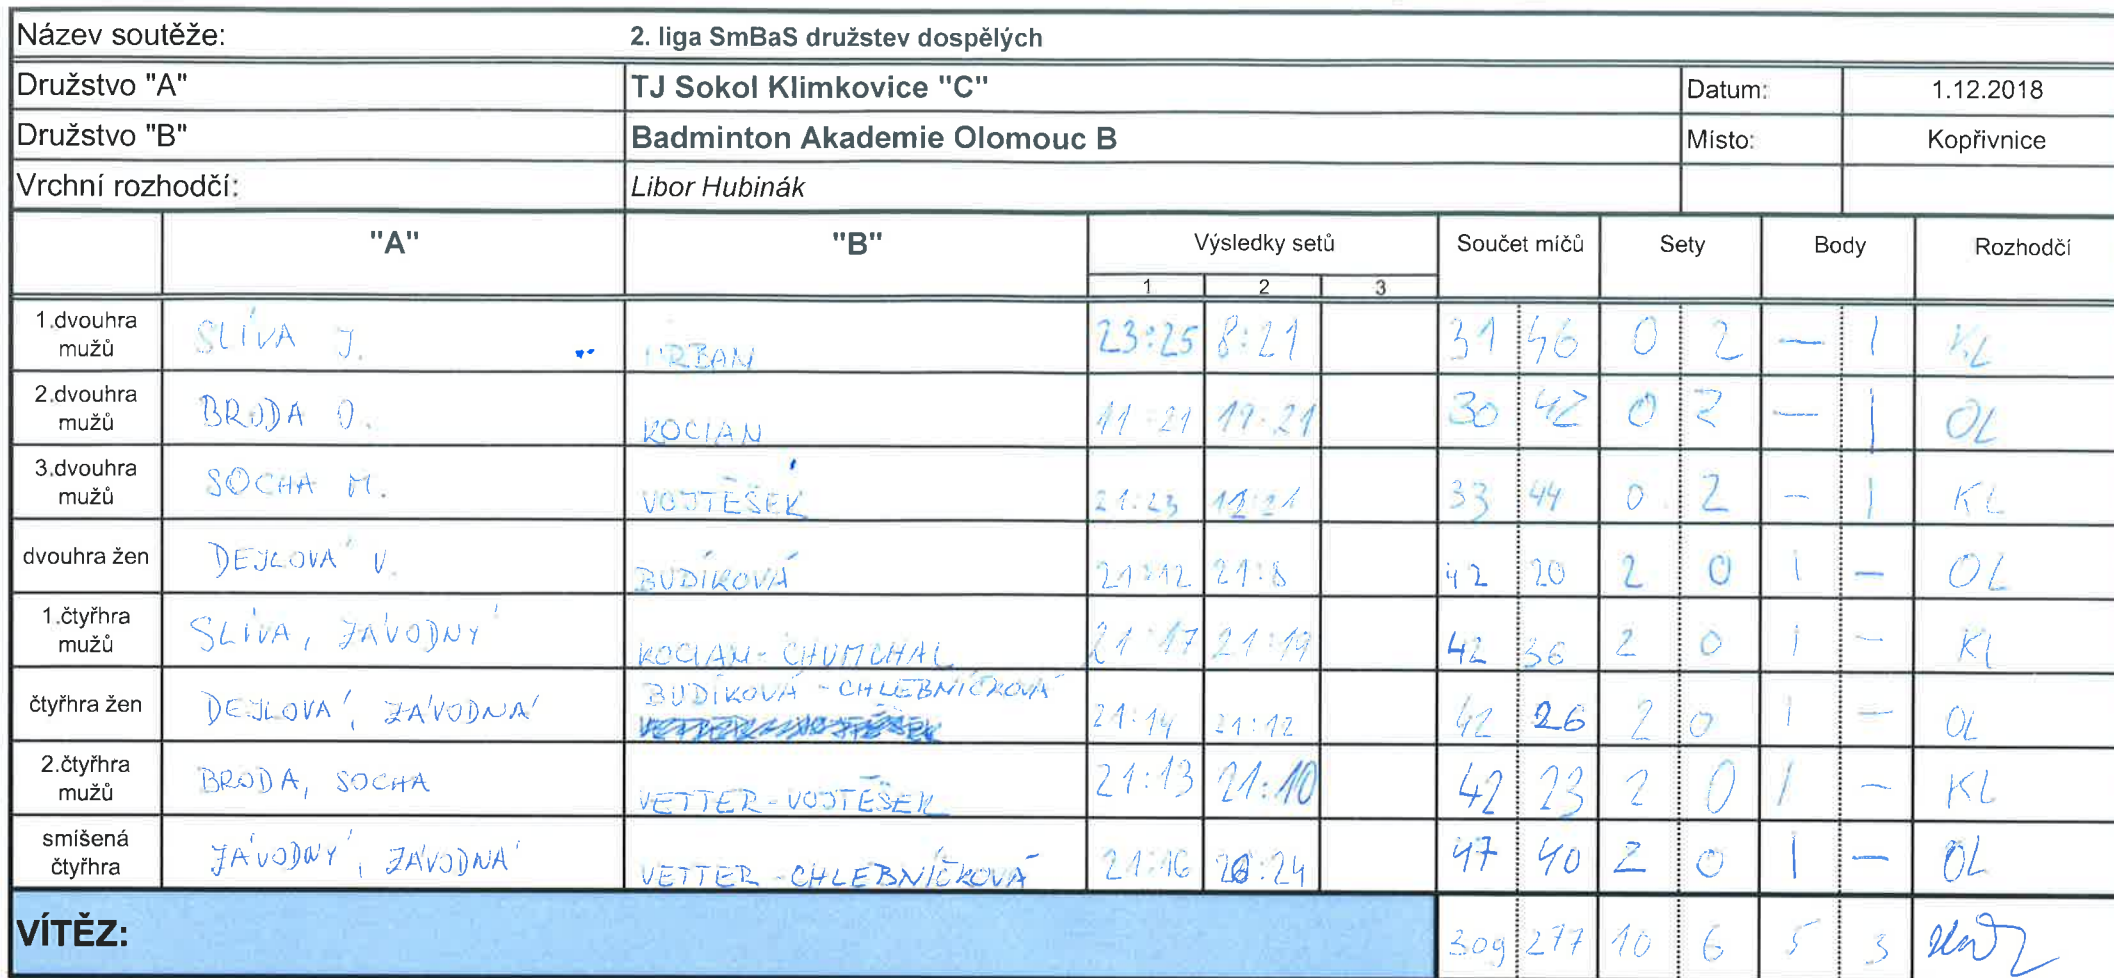 Název soutěže: 2. liga SmBaS družstev dospělých
Družstvo "A" TJ Sokol Klimkovice "C" Datum: 1.12.2018
Družstvo "B" Badminton Akademie Olomouc B Místo: Kopřivnice
Vrchní rozhodčí: Libor Hubinák
"A" "B" Výsledky setů Součet míčů Sety Body Rozhodčí
1 2 3
1.dvouhra mužů SLÍVA J. URBAN 23:25 8:21 31 46 0 2 — 1 KL
2.dvouhra mužů BRODA O. KOCIAN 11:21 19:21 30 42 0 2 — 1 OL
3.dvouhra mužů SOCHA M. VOJTĚŠEK 21:23 12:21 33 44 0 2 - 1 KL
dvouhra žen DEJLOVÁ V. BUDÍKOVÁ 21:12 21:8 42 20 2 0 1 — OL
1.čtyřhra mužů SLÍVA, ZÁVODNÝ KOCIAN-CHUMCHAL 21:17 21:19 42 36 2 0 1 - KL
čtyřhra žen DEJLOVÁ, ZÁVODNÁ BUDÍKOVÁ - CHLEBNÍČKOVÁ 21:14 21:12 42 26 2 0 1 - OL
2.čtyřhra mužů BRODA, SOCHA VETTER-VOJTĚŠEK 21:13 21:10 42 23 2 0 1 - KL
smíšená čtyřhra ZÁVODNÝ, ZÁVODNÁ VETTER-CHLEBNÍČKOVÁ 21:16 26:24 47 40 2 0 1 — OL
VÍTĚZ: 309 277 10 6 5 3